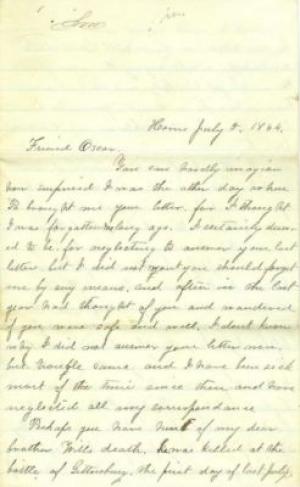 Home July 8, 1864.
Friend Oscar.
You can hardly imagian
how surprised I was the other day when
Pa brought me your letter. for I thought
I was forgotten long ago. I certainly deserv
ed to be for neglecting to answer your last
letter. but I did not want you should forget
me by any means. and often in the last
year had thought of you and wondered
if you were safe and well. I dont know
why I did not answer your letter now,
but trouble came and I have been sick
most of the time since then and have
neglected all my correspondance
Perhaps you have heard of my dear
brother Wills death. he was killed at the
battle of Gettersburg. the first day of last July.